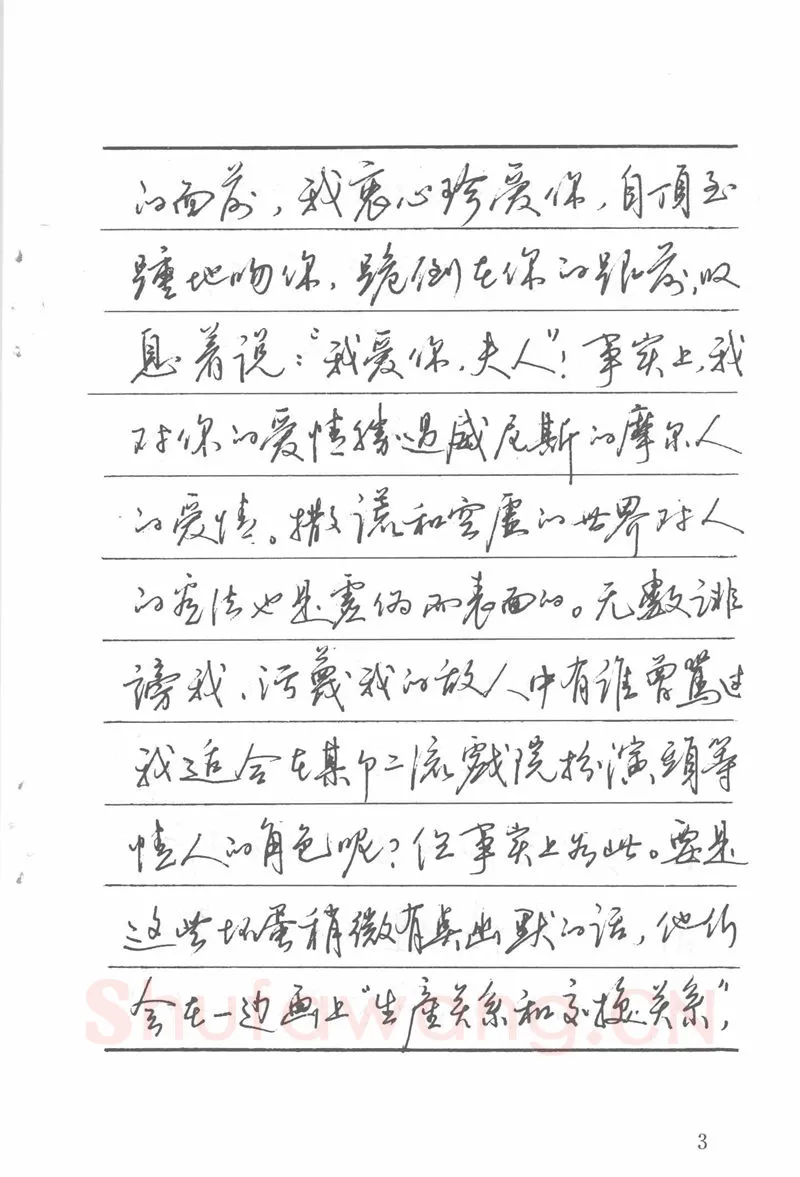 的面前，我衷心珍爱你，自顶至
踵地吻你，跪倒在你的跟前，叹
息着说：“我爱你，夫人”！事实上，我
对你的爱情勝过威尼斯的摩尔人
的爱情。撒谎和空虚的世界对人
的看法也是虚伪而表面的。无数诽
謗我、污衊我的敌人中有谁曾骂过
我适合在某个二流戲院扮演頭等
情人的角色呢？但事实上如此。要是
这些坏蛋稍微有点幽默的话，他们
会在一边画上“生產关系和交换关系”，
Shufawang.CN
3